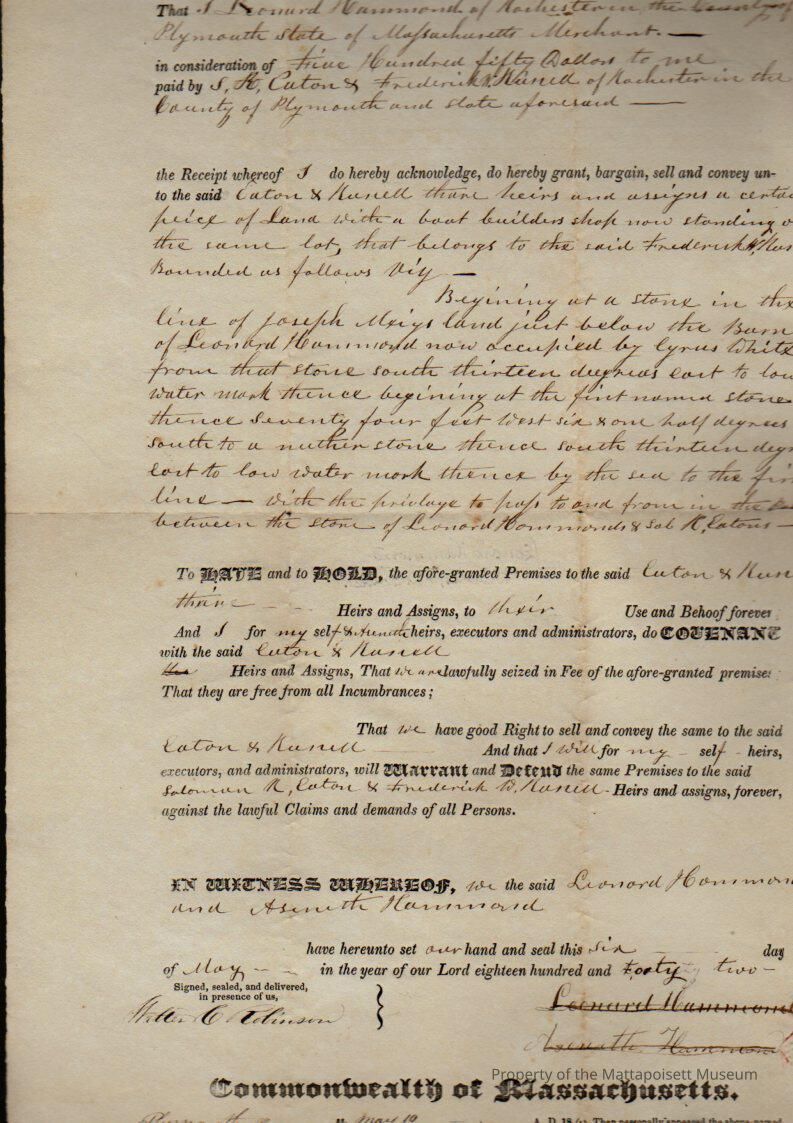 That I Leonard Hammond of Rochester in the County of
Plymouth State of Massachusetts Merchant. —
in consideration of Five Hundred fifty Dollars to me
paid by S, K, Eaton & Frederick W. Russell of Rochester in the
County of Plymouth and state aforesaid —
the Receipt whereof I do hereby acknowledge, do hereby grant, bargain, sell and convey un-
to the said Eaton & Russell thare heirs and assigns a certa
peice of Land with a boat builders shop now standing o
the same lot, that belongs to the said Frederick W, Rus
Bounded as follows Viz —
Begining at a stone in the
line of Joseph Meigs land just below the Barn
of Leonard Hammond now occupied by Cyrus White
from that stone south thirteen degreas east to low
water mark thence begining at the first named stone
thence Seventy four feet West six & one half degrees
South to a nuther stone thence south thirteen degr
east to low water mark thence by the sea to the fir
line — With the privlage to pass to and from in the
between the store of Leonard Hammonds & Sol K, Eatons —
To HAVE and to HOLD, the afore-granted Premises to the said Eaton & Russ
thaire Heirs and Assigns, to their Use and Behoof forever
And I for my self & Aseneth heirs, executors and administrators, do COVENANT
with the said Eaton & Russell
Heirs and Assigns, That we are lawfully seized in Fee of the afore-granted premises
That they are free from all Incumbrances;
That we have good Right to sell and convey the same to the said
Eaton & Russell And that I will for my self - heirs,
executors, and administrators, will Warrant and Defend the same Premises to the said
Solomon K, Eaton & Frederick W. Russell - Heirs and assigns, forever,
against the lawful Claims and demands of all Persons.
IN WITNESS WHEREOF, we the said Leonard Hammon
and Aseneth Hammond
have hereunto set our hand and seal this six day
of May - - in the year of our Lord eighteen hundred and forty two -
Signed, sealed, and delivered,
in presence of us,
Leonard Hammond
Aseneth Hammond
Property of the Mattapoisett Museum
Commonwealth of Massachusetts.
May 19